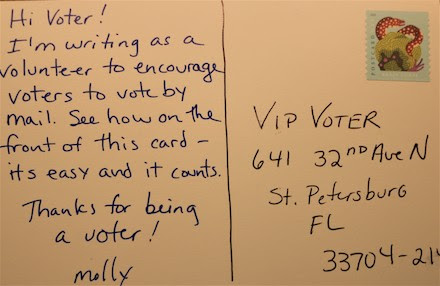 Hi Voter!
I'm writing as a
volunteer to encourage
voters to vote by
mail. See how on the
front of this card –
its easy and it counts.
Thanks for being
a voter!
molly
VIP VOTER
641 32ND Ave N
St. Petersburg
FL
33704-214